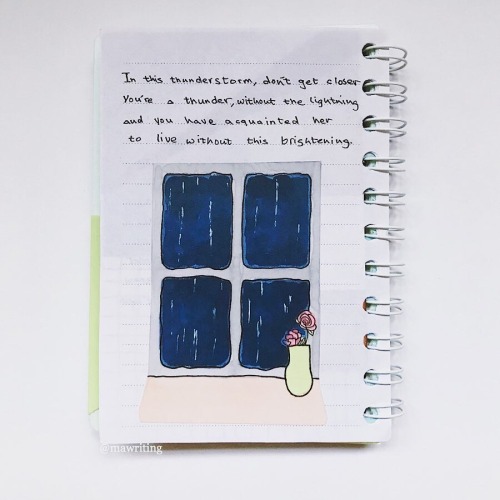 In this thunderstorm, don't get closer
You're a thunder, without the lightning
and you have acquainted her
to live without this brightening.
@mawriting